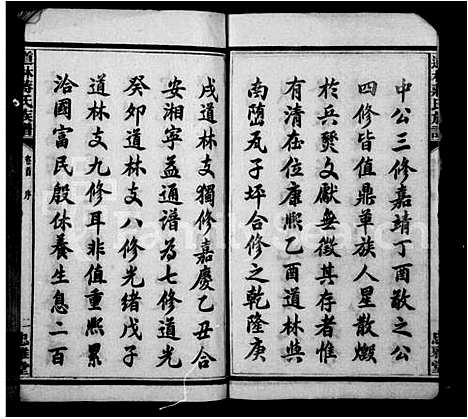 中公三修嘉靖丁酉敬之公
四修皆值鼎革族人星散燬
於兵燹文獻無徵其存者惟
有清在位康熙乙酉道林與
南蔭瓦子坪合修之乾隆庚
戌道林支獨修嘉慶乙丑合
安湘寧益通譜為七修道光
癸卯道林支八修光緒戊子
道林支九修耳非值重熙累
洽國富民殷休養生息二百
道林蔣氏族譜
卷首
序
一